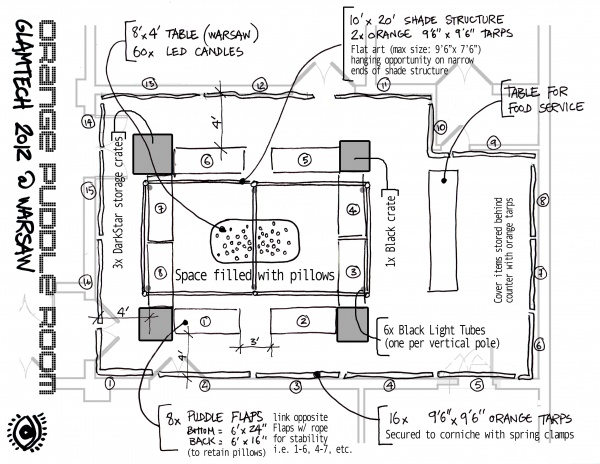 ORANGE PUDDLE ROOM
GLAMTECH 2012 @ WARSAW
8'x4' TABLE (WARSAW)
60x LED CANDLES
10' x 20' SHADE STRUCTURE
2x ORANGE 9'6" x 9'6" TARPS
Flat art (max size: 9'6"x 7'6")
hanging opportunity on narrow
ends of shade structure
TABLE FOR
FOOD SERVICE
13
12
11
14
4'
10
9
3x DarkStar storage crates
6
5
15
7
4
1x Black crate
8
Cover items stored behind
counter with orange tarps
Space filled with pillows
8
3
7
16
4'
1
2
3'
4'
6x Black Light Tubes
(one per vertical pole)
6
1
2
3
4
5
8x PUDDLE FLAPS
BOTTOM = 6'x 24"
BACK = 6'x 16"
(to retain pillows)
link opposite
Flaps w/ rope
for stability
i.e. 1-6, 4-7, etc.
16x 9'6"x 9'6" ORANGE TARPS
Secured to corniche with spring clamps